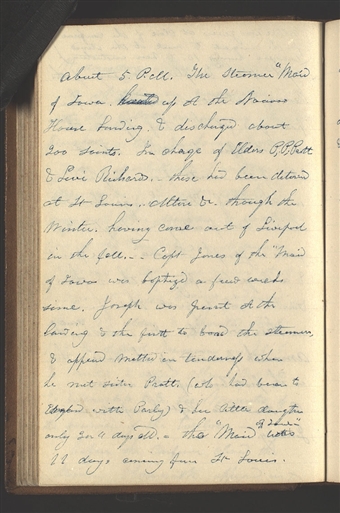 About 5 P.M. The Steamer "Maid
of Iowa. hauled up at the Nauvoo
House landing. & discharged about
200 saints. In charge of Elders P. P. Pratt
& Levi Richards. - these had been detained
at St Louis. Alton &c. through the
Winter. having come out of Liverpool
in the fall. - Capt Jones of the "Maid
of Iowa was baptized a few weeks
since. Joseph was present at the
landing & the first to board the steamer,
& appeared melted in tenderness when
he met sister Pratt. (who had been to
England with Parly) & her little daughter
only 3 or 4 days old. - The "Maid of Iowa" was
11 days coming from St Louis.